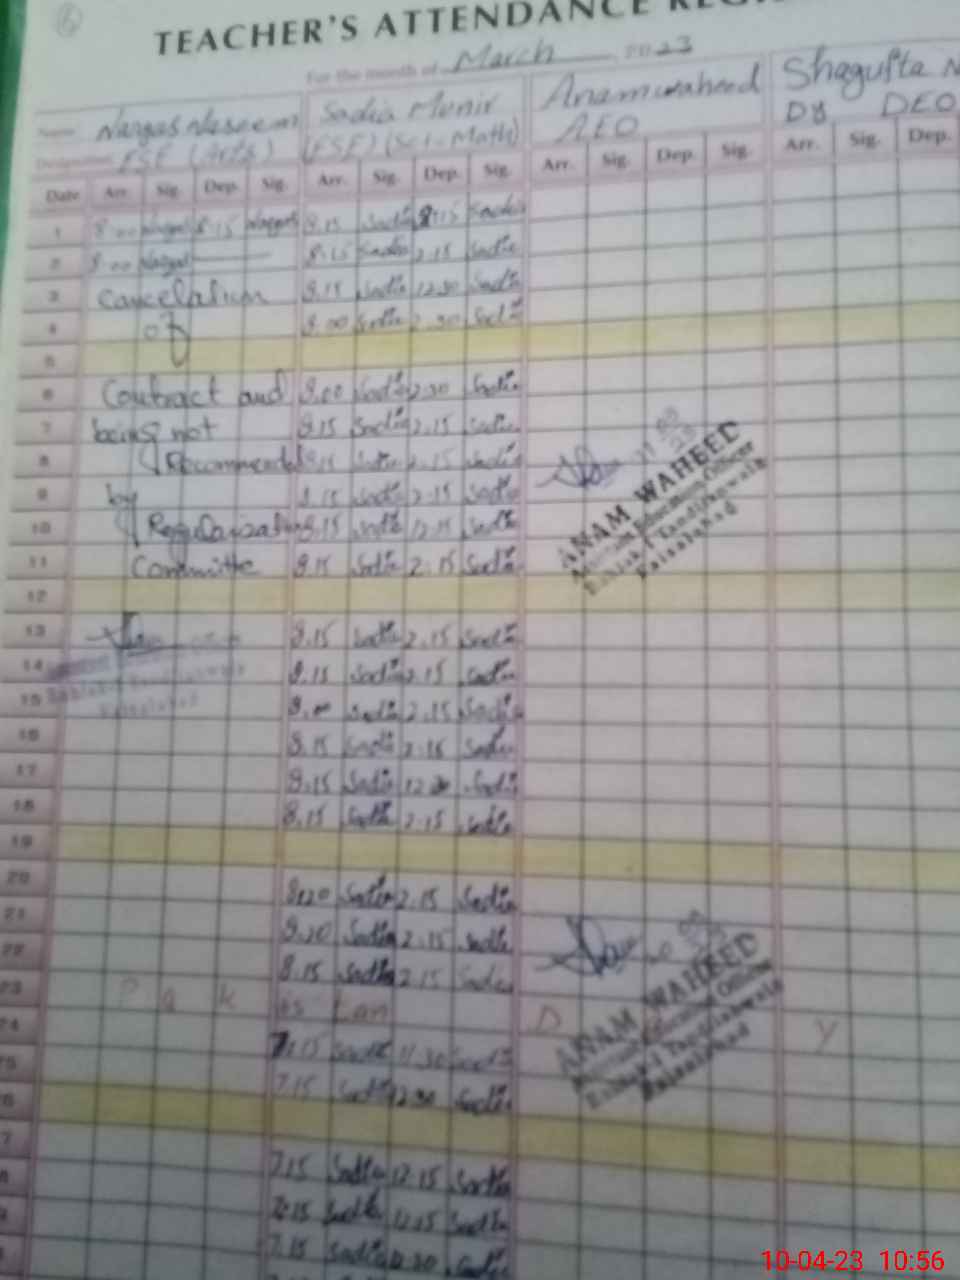 6
TEACHER'S ATTENDANCE REG
For the month of March 2023
Name Nargas Naseem Sadia Munir Anam waheed Shagufta N
Designation ESE (Arts) (ESE) (Sci-Math) AEO Dy DEO
Date Arr. Sig. Dep. Sig. Arr. Sig. Dep. Sig. Arr. Sig. Dep. Sig. Arr. Sig. Dep.
1 8.00 Nargas 8.15 Sadia Sadia
2 8.00 Nargas 8.15 Sadia 2.15 Sadia
3 Cancelation 8.15 Sadia 12.30 Sadia
4 of 8.00 Sadia 2.30 Sadia
5
6 Contract and 8.00 Sadia 2.30 Sadia
7 being not 8.15 Sadia 2.15 Sadia
8 Recommended 8.15 Sadia 2.15 Sadia
9 by 8.15 Sadia 2.15 Sadia
10 Regularization 8.15 Sadia 12.15 Sadia
11 Committe 8.15 Sadia 2.15 Sadia
ANAM WAHEED
Assistant Education Officer
Tandlianwala
Faisalabad
12
13 8.15 Sadia 2.15 Sadia
14 8.15 Sadia 2.15 Sadia
15 8.00 Sadia 2.15 Sadia
Faisalabad
16 8.15 Sadia 2.15 Sadia
17 8.15 Sadia 12.30 Sadia
18 8.15 Sadia 2.15 Sadia
19
20 8.20 Sadia 2.15 Sadia
21 8.20 Sadia 2.15 Sadia
22 8.15 Sadia 2.15 Sadia
23 P a k is tan D y
24 7.15 Sadia 11.30 Sadia
25 7.15 Sadia 12.30 Sadia
ANAM WAHEED
Assistant Education Officer
Tandlianwala
Faisalabad
26
27
28 7.15 Sadia 12.15 Sadia
7.15 Sadia 12.15 Sadia
7.15 Sadia 12.30 Sadia
10-04-23 10:56